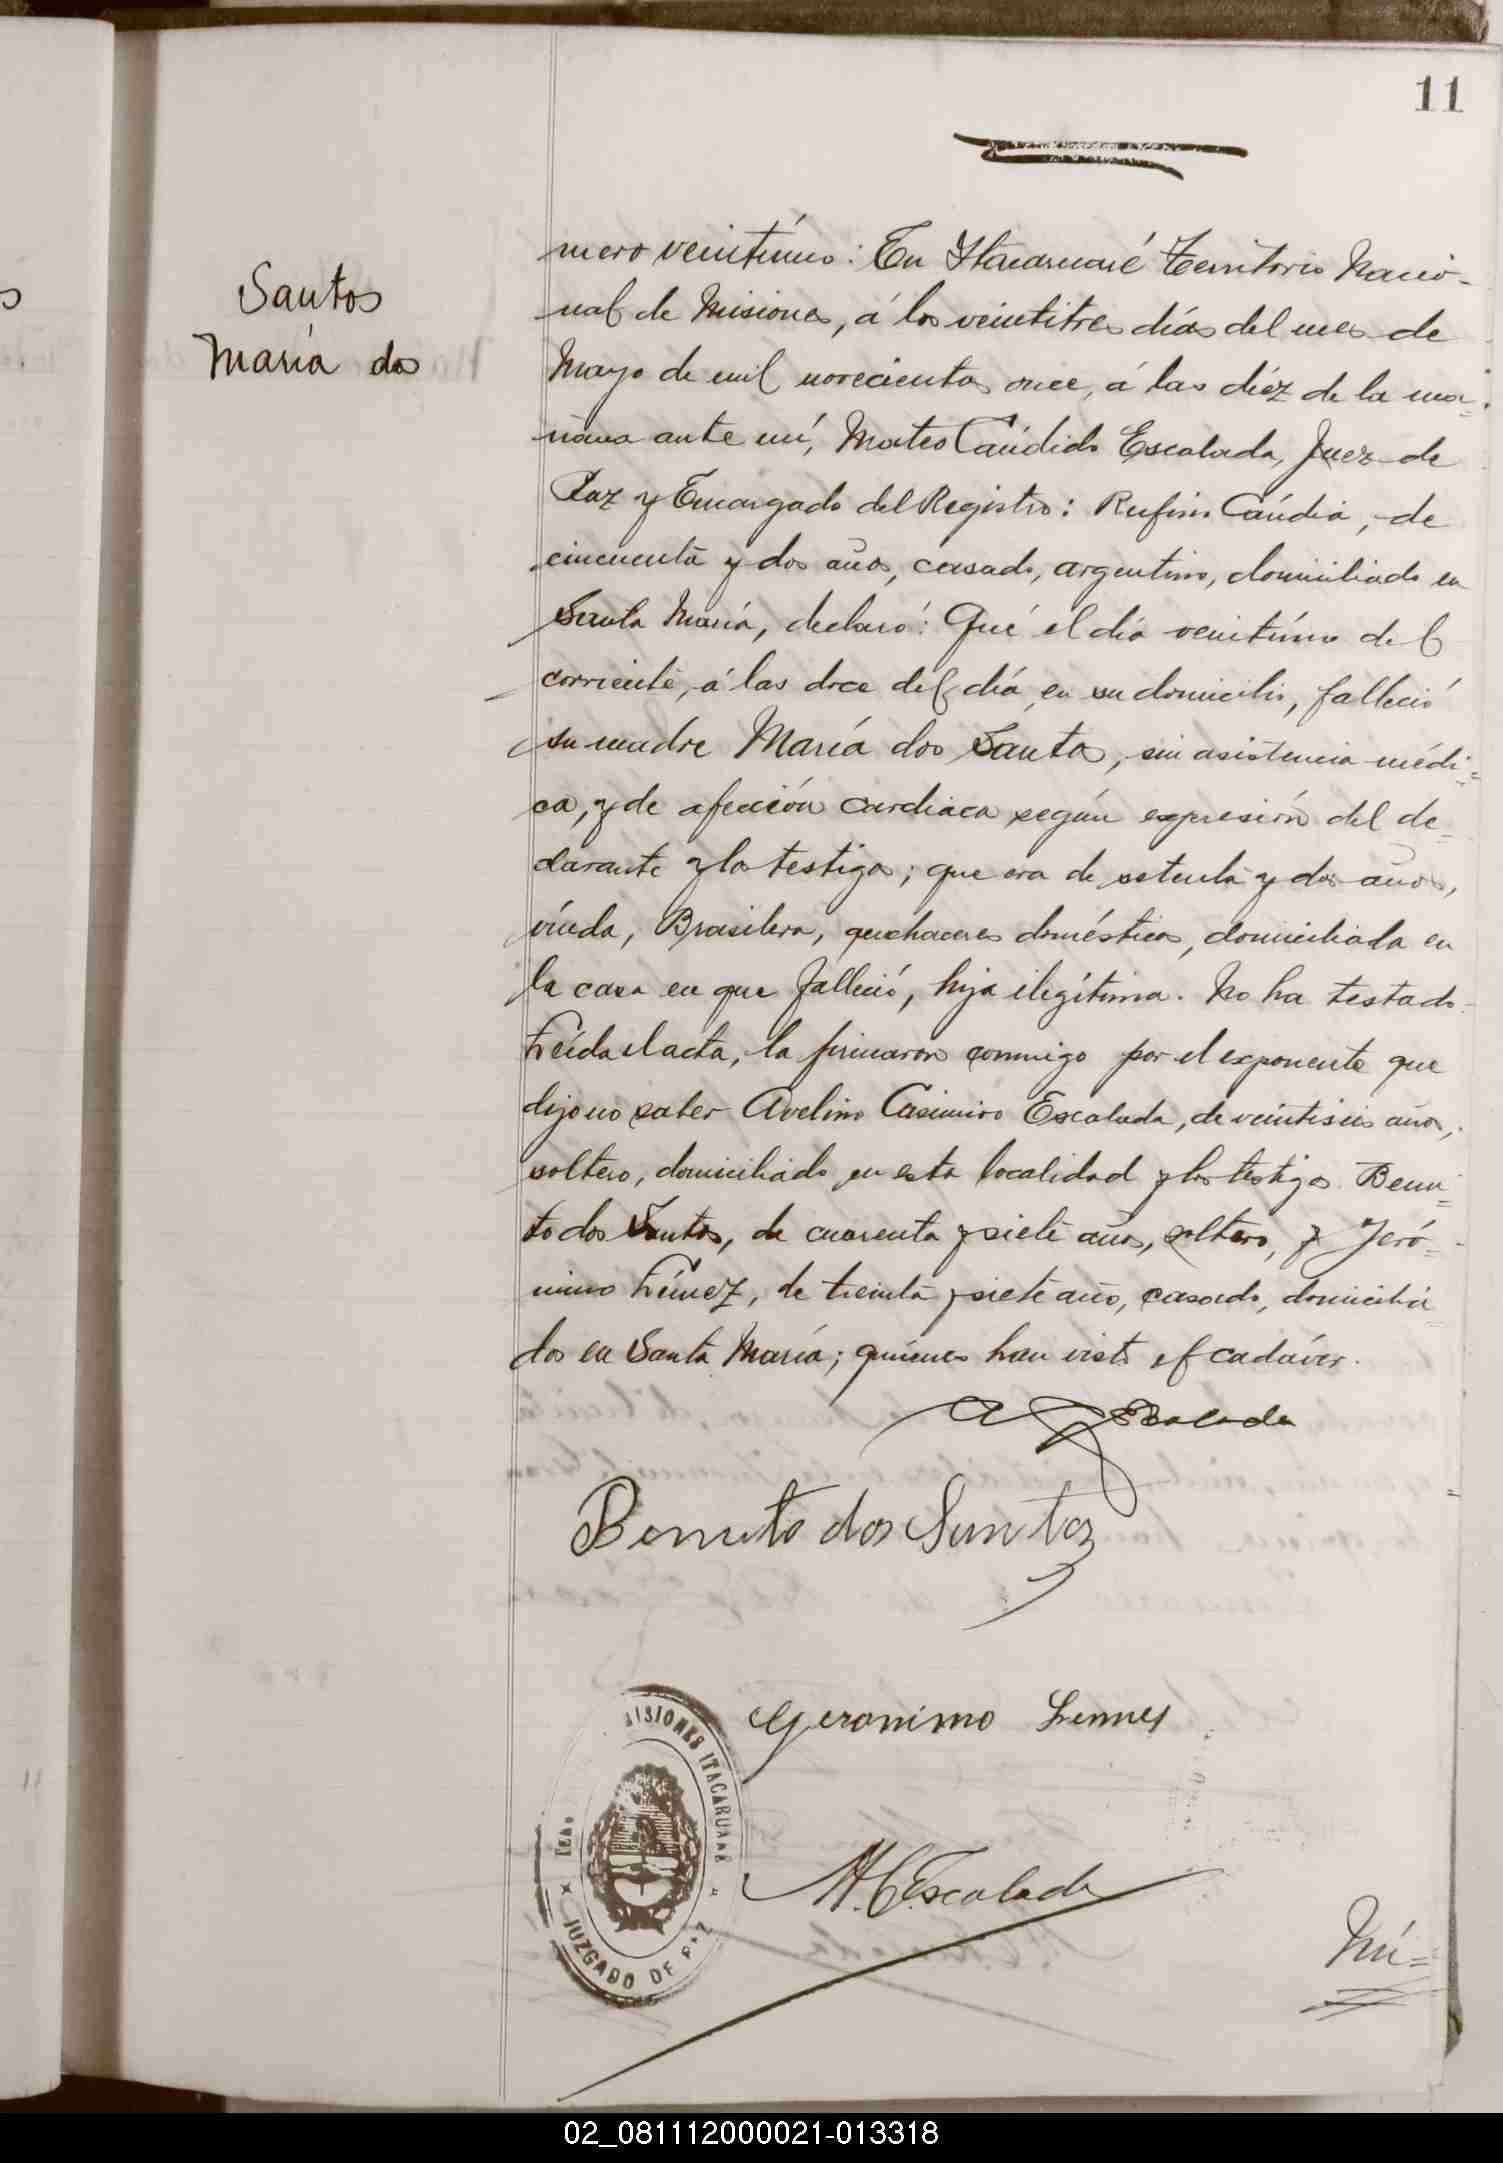 11
Santos
María dos
mero veintiuno: En Itacaruaré Territorio Nacio-
nal de Misiones, á los veintitres días del mes de
Mayo de mil novecientos once, á las diéz de la ma-
ñana ante mí, Mateo Cándido Escalada, Juez de
Paz y Encargado del Registro: Rufino Cándia, de
cincuenta y dos años, casado, argentino, domiciliado en
Santa María, declaró: Qué el día veintiuno del
corriente, á las doce del día, en su domicilio, falleció
su madre María dos Santos, sin asistencia médi-
ca, y de afección cardiaca según expresión del de-
clarante y los testigos; que era de setenta y dos años,
viuda, Brasilera, quehaceres domésticos, domiciliada en
la casa en que falleció, hija ilegítima. No ha testado.
Leída el acta, la firmaron conmigo por el exponente que
dijo no saber Avelino Casimiro Escalada, de veintiseis años,
soltero, domiciliado en esta localidad y los testigos Beni-
to dos Santos, de cuarenta y siete años, soltero, y Jeró-
nimo Lémez, de treinta y siete años, casado, domicilia-
dos en Santa María; quiénes han visto el cadáver.
Escalada
Benito dos Santos
Geronimo Lemes
MISIONES ITACARUARÉ
JUZGADO DE PAZ
M. C. Escalada
Nú=
02_081112000021-013318